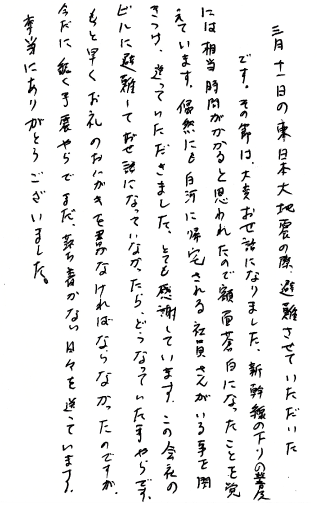 三月十一日の東日本大地震の際、避難させていただいた
です。その節は、大変お世話になりました。新幹線の下りの普及
には相当時間がかかると思われたので顔面蒼白になったことを覚
えています。偶然にも白河に帰宅される社員さんがいる事を聞
きつけ、送っていただきました。とても感謝しています。この会社の
ビルに避難してお世話になっていなかったら、どうなっていた事やらです。
もっと早くお礼のおはがきを書かなければならなかったのですが、
今だに続く予震やらでまだ、落ち着かない日々を送っています。
本当にありがとうございました。